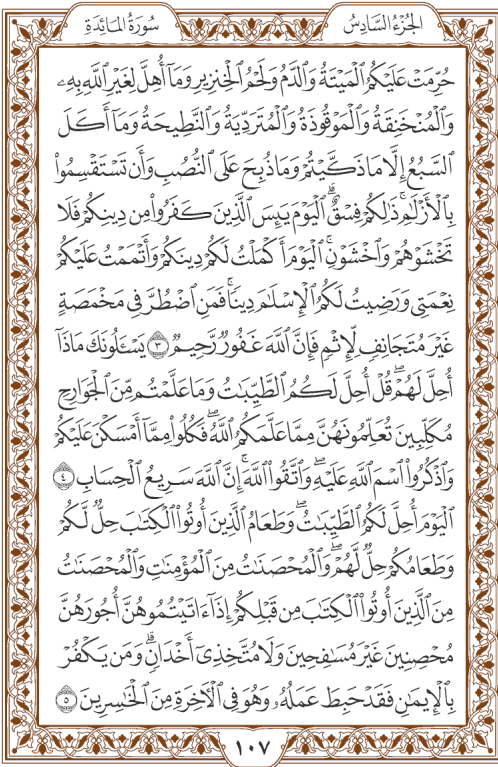 الجُزْءُ السَّادِسُ سُورَةُ المَائِدَةِ
حُرِّمَتْ عَلَيْكُمُ الْمَيْتَةُ وَالدَّمُ وَلَحْمُ الْخِنزِيرِ وَمَا أُهِلَّ لِغَيْرِ اللَّهِ بِهِۦ
وَالْمُنْخَنِقَةُ وَالْمَوْقُوذَةُ وَالْمُتَرَدِّيَةُ وَالنَّطِيحَةُ وَمَا أَكَلَ
السَّبُعُ إِلَّا مَا ذَكَّيْتُمْ وَمَا ذُبِحَ عَلَى النُّصُبِ وَأَن تَسْتَقْسِمُوا
بِالْأَزْلَٰمِ ۚ ذَٰلِكُمْ فِسْقٌ ۗ الْيَوْمَ يَئِسَ الَّذِينَ كَفَرُوا مِن دِينِكُمْ فَلَا
تَخْشَوْهُمْ وَاخْشَوْنِ ۚ الْيَوْمَ أَكْمَلْتُ لَكُمْ دِينَكُمْ وَأَتْمَمْتُ عَلَيْكُمْ
نِعْمَتِي وَرَضِيتُ لَكُمُ الْإِسْلَٰمَ دِينًا ۚ فَمَنِ اضْطُرَّ فِي مَخْمَصَةٍ
غَيْرَ مُتَجَانِفٍ لِّإِثْمٍ فَإِنَّ اللَّهَ غَفُورٌ رَّحِيمٌ ٣ يَسْـَٔلُونَكَ مَاذَا
أُحِلَّ لَهُمْ ۖ قُلْ أُحِلَّ لَكُمُ الطَّيِّبَٰتُ وَمَا عَلَّمْتُم مِّنَ الْجَوَارِحِ
مُكَلِّبِينَ تُعَلِّمُونَهُنَّ مِمَّا عَلَّمَكُمُ اللَّهُ ۖ فَكُلُوا مِمَّا أَمْسَكْنَ عَلَيْكُمْ
وَاذْكُرُوا اسْمَ اللَّهِ عَلَيْهِ ۖ وَاتَّقُوا اللَّهَ ۚ إِنَّ اللَّهَ سَرِيعُ الْحِسَابِ ٤
الْيَوْمَ أُحِلَّ لَكُمُ الطَّيِّبَٰتُ ۖ وَطَعَامُ الَّذِينَ أُوتُوا الْكِتَٰبَ حِلٌّ لَّكُمْ
وَطَعَامُكُمْ حِلٌّ لَّهُمْ ۖ وَالْمُحْصَنَٰتُ مِنَ الْمُؤْمِنَٰتِ وَالْمُحْصَنَٰتُ
مِنَ الَّذِينَ أُوتُوا الْكِتَٰبَ مِن قَبْلِكُمْ إِذَا ءَاتَيْتُمُوهُنَّ أُجُورَهُنَّ
مُحْصِنِينَ غَيْرَ مُسَٰفِحِينَ وَلَا مُتَّخِذِي أَخْدَانٍ ۗ وَمَن يَكْفُرْ
بِالْإِيمَٰنِ فَقَدْ حَبِطَ عَمَلُهُۥ وَهُوَ فِي الْءَاخِرَةِ مِنَ الْخَٰسِرِينَ ٥
١٠٧